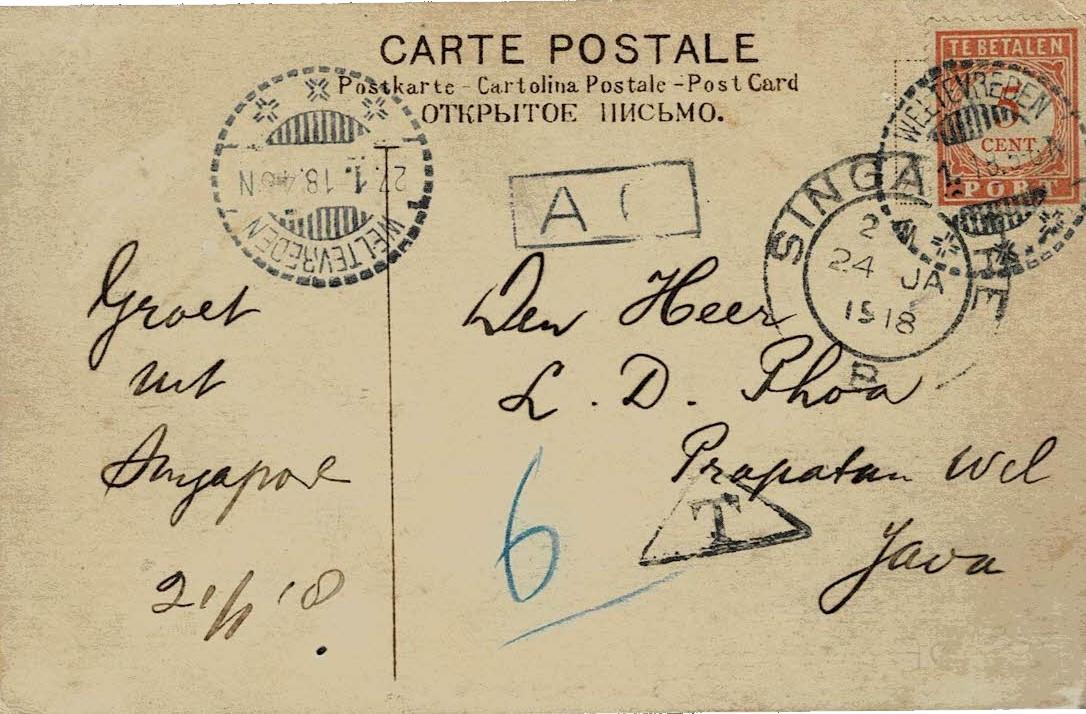 CARTE POSTALE
Postkarte - Cartolina Postale - Post Card
ОТКРЫТОЕ ПИСЬМО.
TE BETALEN
5
CENT.
PORT
WELTEVREDEN
27.1.18.4-5N
WELTEVREDEN
A C
SINGA RE
24 JA
1918
B
Groet
uit
Singapore
21/1 '18
Den Heer
L. D. Phoa
Prapatan Wel
Java
6
T